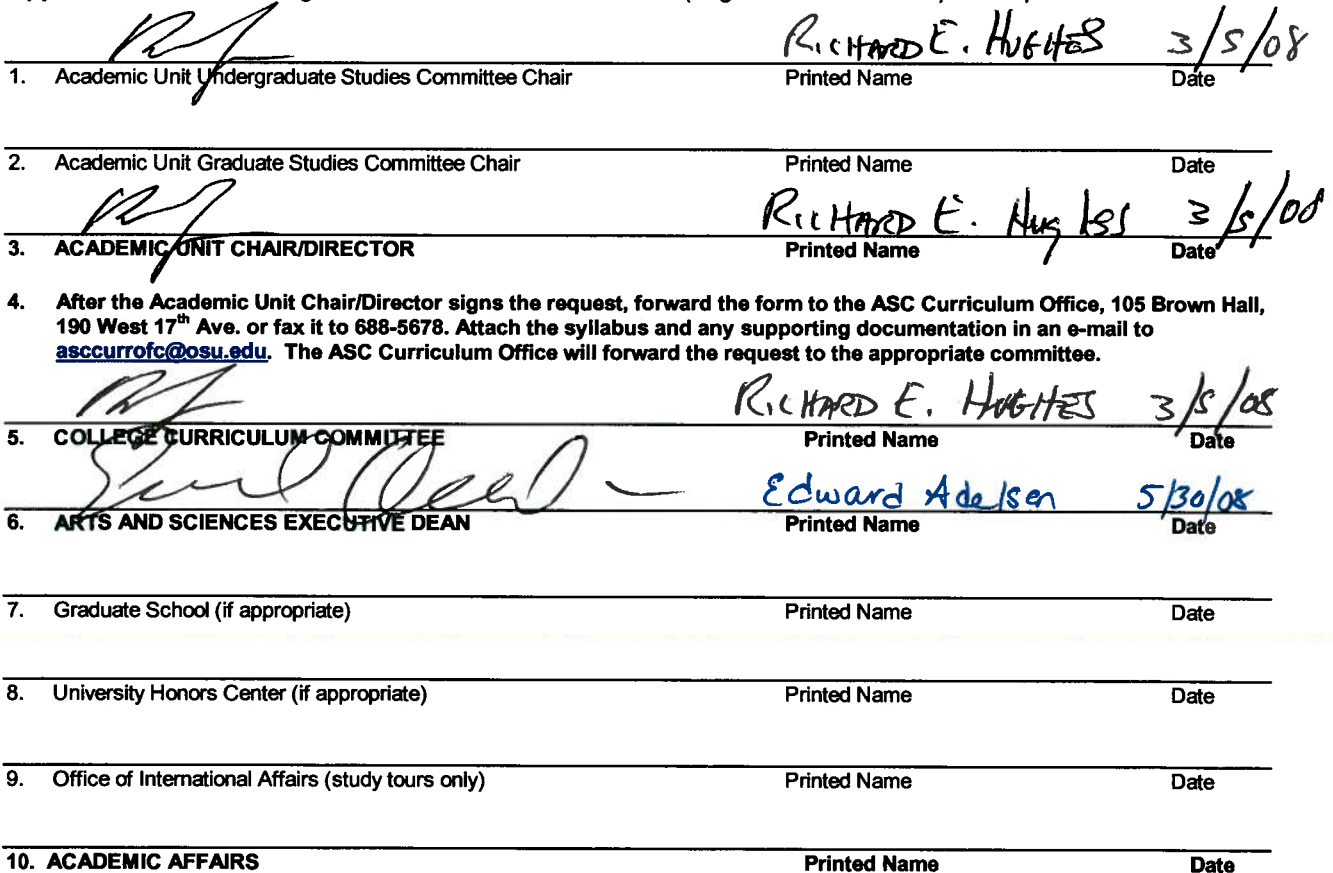 RICHARD E. HUGHES 3/5/08
1. Academic Unit Undergraduate Studies Committee Chair Printed Name Date
2. Academic Unit Graduate Studies Committee Chair Printed Name Date
RICHARD E. Hughes 3/5/08
3. ACADEMIC UNIT CHAIR/DIRECTOR Printed Name Date
4. After the Academic Unit Chair/Director signs the request, forward the form to the ASC Curriculum Office, 105 Brown Hall,
190 West 17th Ave. or fax it to 688-5678. Attach the syllabus and any supporting documentation in an e-mail to
asccurrofc@osu.edu. The ASC Curriculum Office will forward the request to the appropriate committee.
RICHARD E. HUGHES 3/5/08
5. COLLEGE CURRICULUM COMMITTEE Printed Name Date
Edward Adelsen 5/30/08
6. ARTS AND SCIENCES EXECUTIVE DEAN Printed Name Date
7. Graduate School (if appropriate) Printed Name Date
8. University Honors Center (if appropriate) Printed Name Date
9. Office of International Affairs (study tours only) Printed Name Date
10. ACADEMIC AFFAIRS Printed Name Date